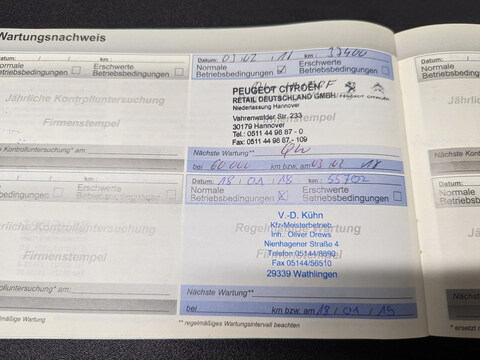 Wartungsnachweis
Datum: / / km:
Normale Betriebsbedingungen
Erschwerte Betriebsbedingungen
Jährliche Kontrolluntersuchung
Firmenstempel
Kontrolluntersuchung* am:
Datum: / / km:
Normale Betriebsbedingungen
Erschwerte Betriebsbedingungen
Jährliche Kontrolluntersuchung
Firmenstempel
Kontrolluntersuchung* am:
regelmäßige Wartung
Datum: 03 02 17 km: 37400
Normale Betriebsbedingungen
Erschwerte Betriebsbedingungen
PEUGEOT CITROËN
RETAIL DEUTSCHLAND GMBH
PEUGEOT CITROËN
Niederlassung Hannover
Vahrenwalder Str. 233
30179 Hannover
Tel.: 0511 44 98 87 - 0
Fax 0511 44 98 87 - 109
Nächste Wartung*
bei 60000 km bzw. am 03 02 18
Datum: 18 01 18 km: 55702
Normale Betriebsbedingungen
Erschwerte Betriebsbedingungen
V.-D. Kühn
Kfz-Meisterbetrieb
Inh. Oliver Drews
Nienhagener Straße 4
Telefon 05144/8690
Fax 05144/56510
29339 Wathlingen
Nächste Wartung**
bei km bzw. am 18 01 19
** regelmäßiges Wartungsintervall beachten
Datum:
Normale
Betriebsbedingungen
Nächste Kon
Datum:
Normale
Betriebsbed
Nächste
* ersetzt n